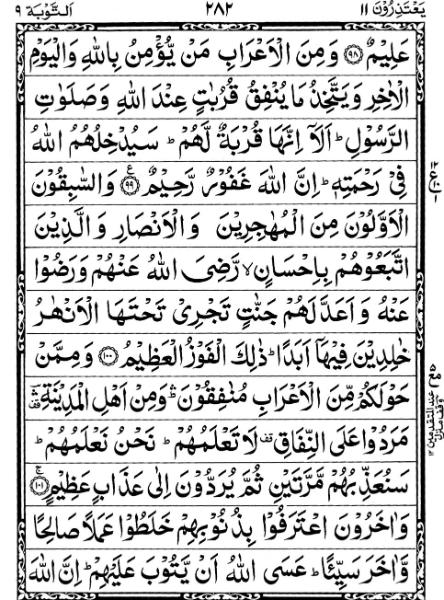 يَعْتَذِرُوْنَ ١١ ٢٨٢ اَلتَّوْبَة ٩
عَلِيْمٌ ﴿٩٨﴾ وَمِنَ الْاَعْرَابِ مَنْ يُّؤْمِنُ بِاللّٰهِ وَالْيَوْمِ
الْاٰخِرِ وَيَتَّخِذُ مَا يُنْفِقُ قُرُبٰتٍ عِنْدَ اللّٰهِ وَصَلَوٰتِ
الرَّسُوْلِ ؕ اَلَاۤ اِنَّهَا قُرْبَةٌ لَّهُمْ ؕ سَيُدْخِلُهُمُ اللّٰهُ
فِيْ رَحْمَتِهٖ ؕ اِنَّ اللّٰهَ غَفُوْرٌ رَّحِيْمٌ ﴿٩٩﴾ وَالسّٰبِقُوْنَ
الْاَوَّلُوْنَ مِنَ الْمُهٰجِرِيْنَ وَالْاَنْصَارِ وَالَّذِيْنَ
اتَّبَعُوْهُمْ بِاِحْسَانٍ ۙ رَّضِيَ اللّٰهُ عَنْهُمْ وَرَضُوْا
عَنْهُ وَاَعَدَّ لَهُمْ جَنّٰتٍ تَجْرِيْ تَحْتَهَا الْاَنْهٰرُ
خٰلِدِيْنَ فِيْهَاۤ اَبَدًا ؕ ذٰلِكَ الْفَوْزُ الْعَظِيْمُ ﴿١٠٠﴾ وَمِمَّنْ
حَوْلَكُمْ مِّنَ الْاَعْرَابِ مُنٰفِقُوْنَ ۛؕ وَمِنْ اَهْلِ الْمَدِيْنَةِ ۛ
مَرَدُوْا عَلَى النِّفَاقِ لَا تَعْلَمُهُمْ ؕ نَحْنُ نَعْلَمُهُمْ ؕ
سَنُعَذِّبُهُمْ مَّرَّتَيْنِ ثُمَّ يُرَدُّوْنَ اِلٰى عَذَابٍ عَظِيْمٍ ﴿١٠١﴾
وَاٰخَرُوْنَ اعْتَرَفُوْا بِذُنُوْبِهِمْ خَلَطُوْا عَمَلًا صَالِحًا
وَّاٰخَرَ سَيِّئًا ؕ عَسَى اللّٰهُ اَنْ يَّتُوْبَ عَلَيْهِمْ ؕ اِنَّ اللّٰهَ